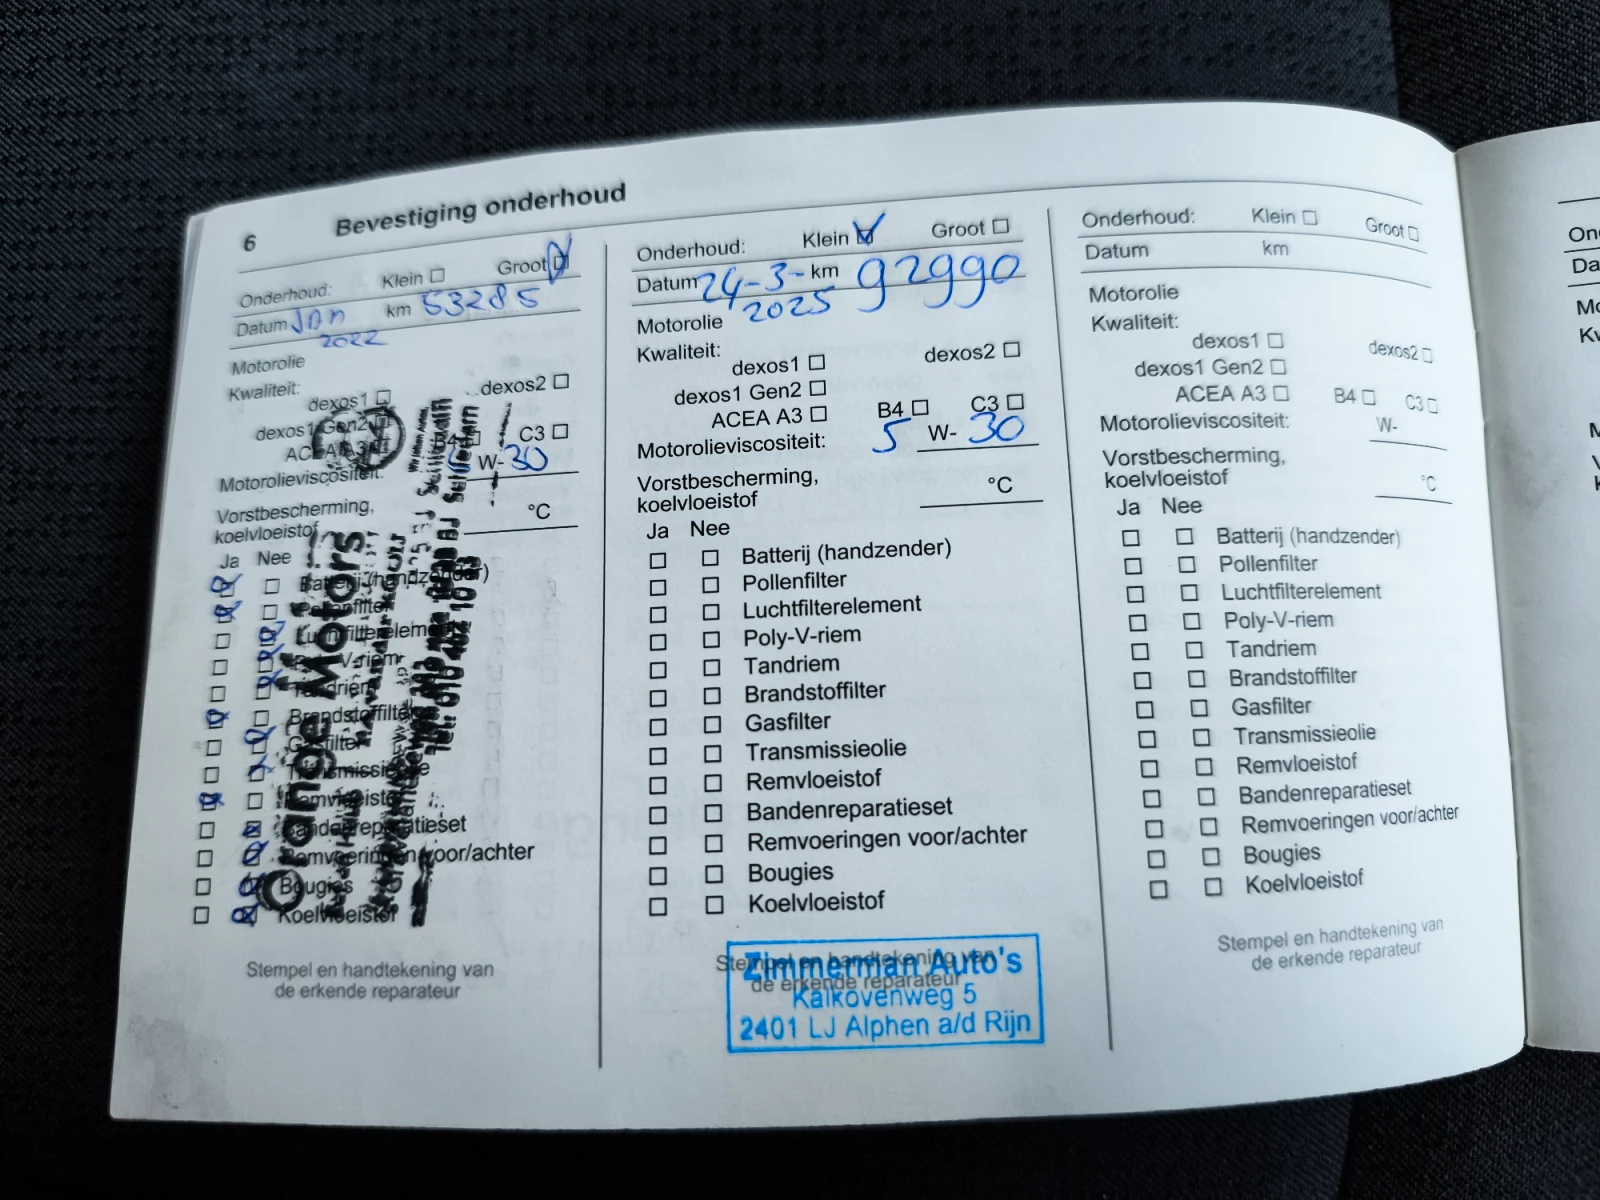 6 Bevestiging onderhoud
Onderhoud: Klein Groot
Datum Jan km 53285
2022
Motorolie
Kwaliteit:
dexos1 dexos2
dexos1 Gen2
ACEA A3 B4 C3
Motorolieviscositeit: W- 30
Vorstbescherming,
koelvloeistof °C
Ja Nee
Batterij (handzender)
Pollenfilter
Luchtfilterelement
Poly-V-riem
Tandriem
Brandstoffilter
Gasfilter
Transmissieolie
Remvloeistof
Bandenreparatieset
Remvoeringen voor/achter
Bougies
Koelvloeistof
Orange Motors
Stempel en handtekening van
de erkende reparateur
Onderhoud: Klein Groot
Datum 24-3- km 92990
2025
Motorolie
Kwaliteit:
dexos1 dexos2
dexos1 Gen2
ACEA A3 B4 C3
Motorolieviscositeit: 5 W- 30
Vorstbescherming,
koelvloeistof °C
Ja Nee
Batterij (handzender)
Pollenfilter
Luchtfilterelement
Poly-V-riem
Tandriem
Brandstoffilter
Gasfilter
Transmissieolie
Remvloeistof
Bandenreparatieset
Remvoeringen voor/achter
Bougies
Koelvloeistof
Stempel en handtekening van
de erkende reparateur
Zimmerman Auto's
Kalkovenweg 5
2401 LJ Alphen a/d Rijn
Onderhoud: Klein Groot
Datum km
Motorolie
Kwaliteit:
dexos1 dexos2
dexos1 Gen2
ACEA A3 B4 C3
Motorolieviscositeit: W-
Vorstbescherming,
koelvloeistof °C
Ja Nee
Batterij (handzender)
Pollenfilter
Luchtfilterelement
Poly-V-riem
Tandriem
Brandstoffilter
Gasfilter
Transmissieolie
Remvloeistof
Bandenreparatieset
Remvoeringen voor/achter
Bougies
Koelvloeistof
Stempel en handtekening van
de erkende reparateur